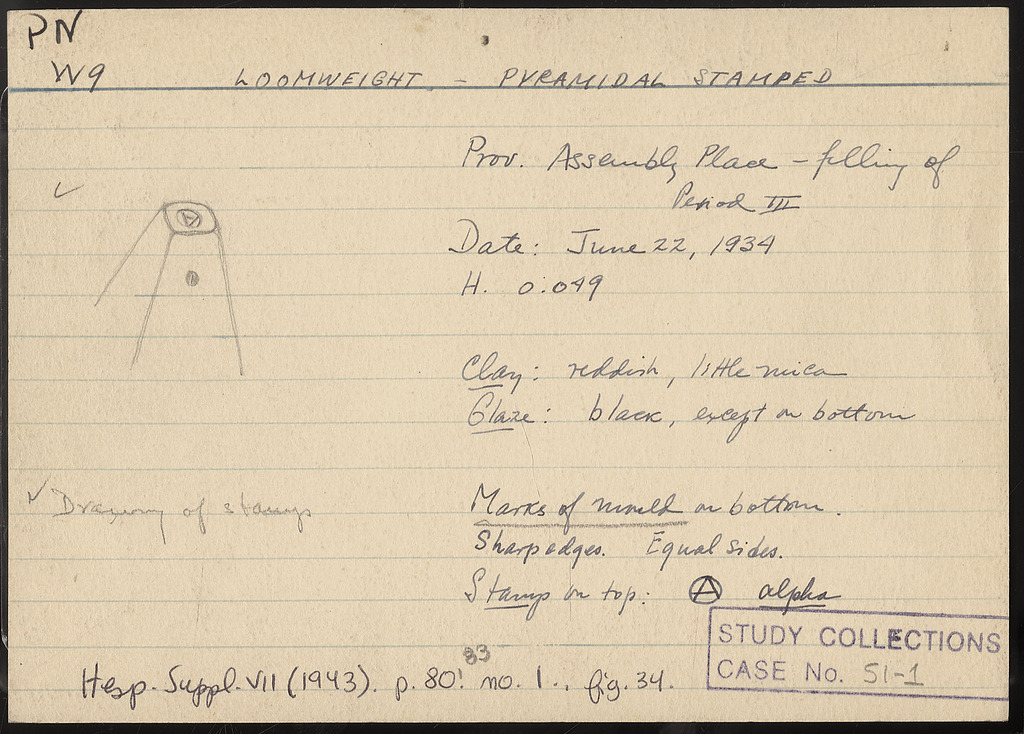 PN
W9
LOOMWEIGHT - PYRAMIDAL STAMPED
Prov. Assembly Place - filling of
Period III
Date: June 22, 1934
H. 0.049
Clay: reddish, little mica
Glaze: black, except on bottom
Drawing of stamps
Marks of mould on bottom.
Sharp edges. Equal sides.
Stamp on top: Ⓐ alpha
83
Hesp. Suppl. VII (1943). p. 80! no. 1., fig. 34.
STUDY COLLECTIONS
CASE No. SI-1